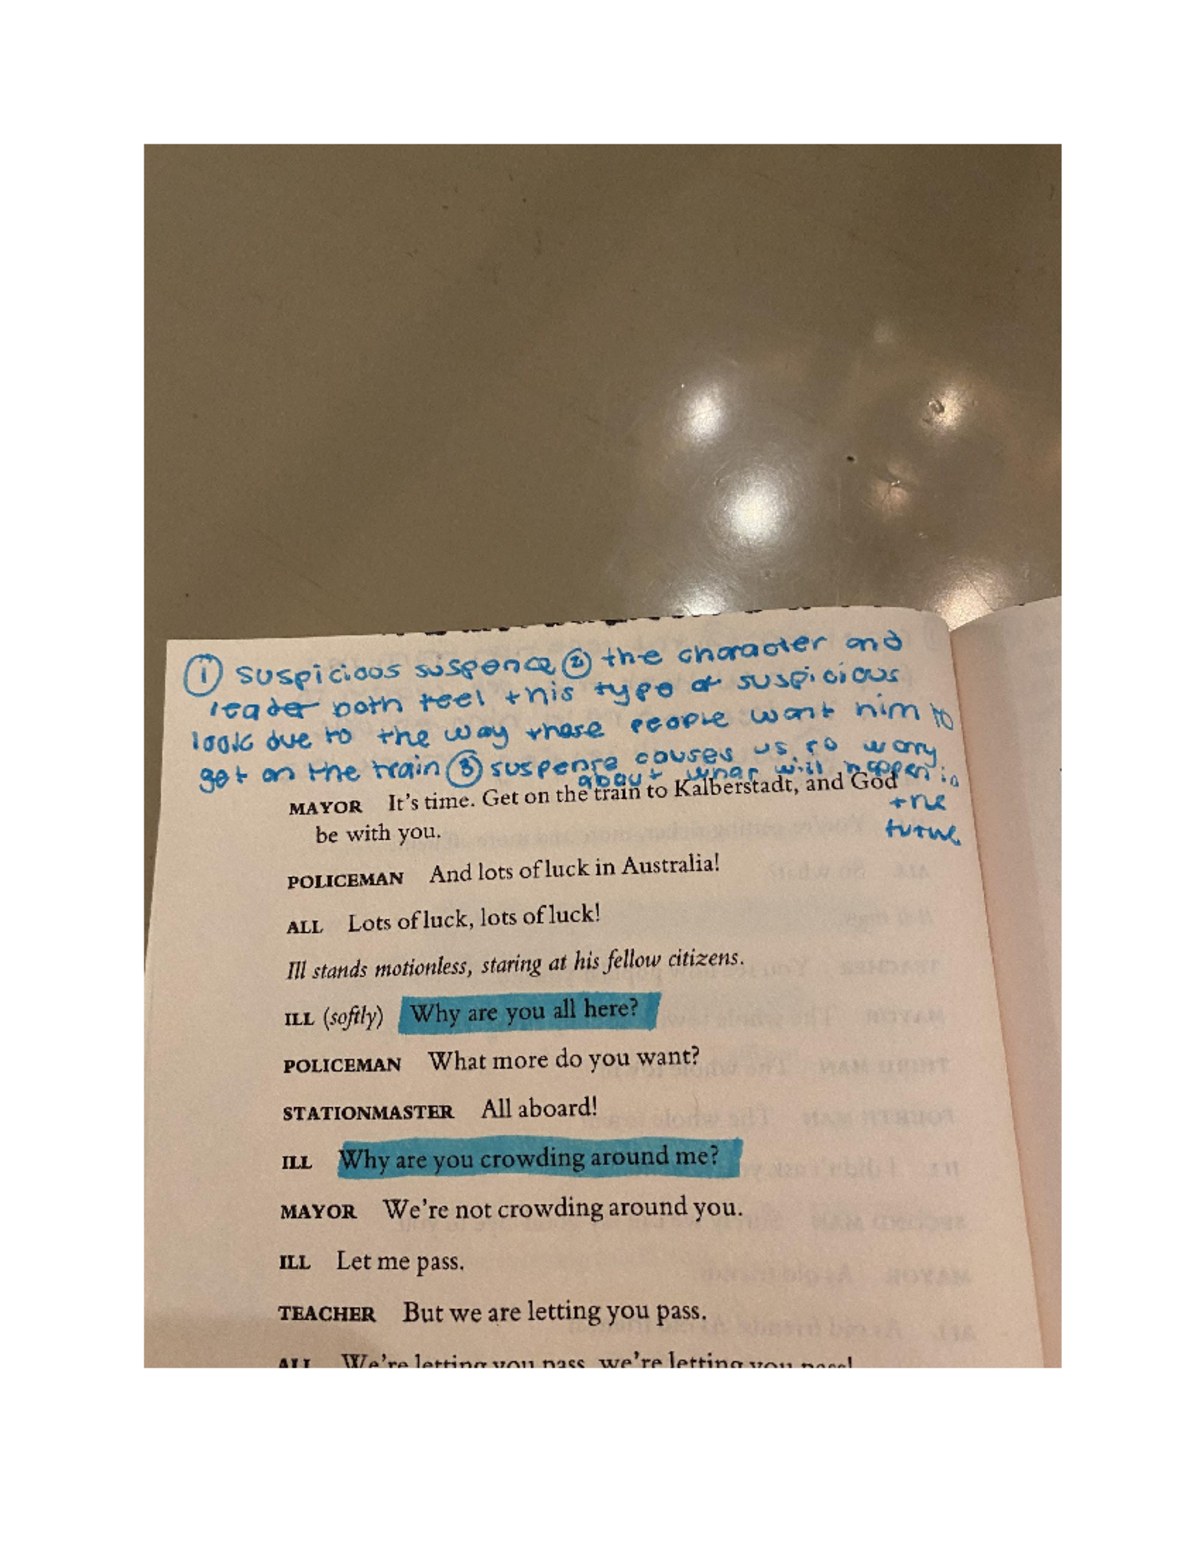 ① suspicious suspence ② the character and
reader both feel this type of suspicious
look due to the way these people want him to
get on the train ③ suspense causes us to worry
about what will happen in
the
future
MAYOR It's time. Get on the train to Kalberstadt, and God
be with you.
POLICEMAN And lots of luck in Australia!
ALL Lots of luck, lots of luck!
Ill stands motionless, staring at his fellow citizens.
ILL (softly) Why are you all here?
POLICEMAN What more do you want?
STATIONMASTER All aboard!
ILL Why are you crowding around me?
MAYOR We're not crowding around you.
ILL Let me pass.
TEACHER But we are letting you pass.
ALL We're letting you pass, we're letting you pass!